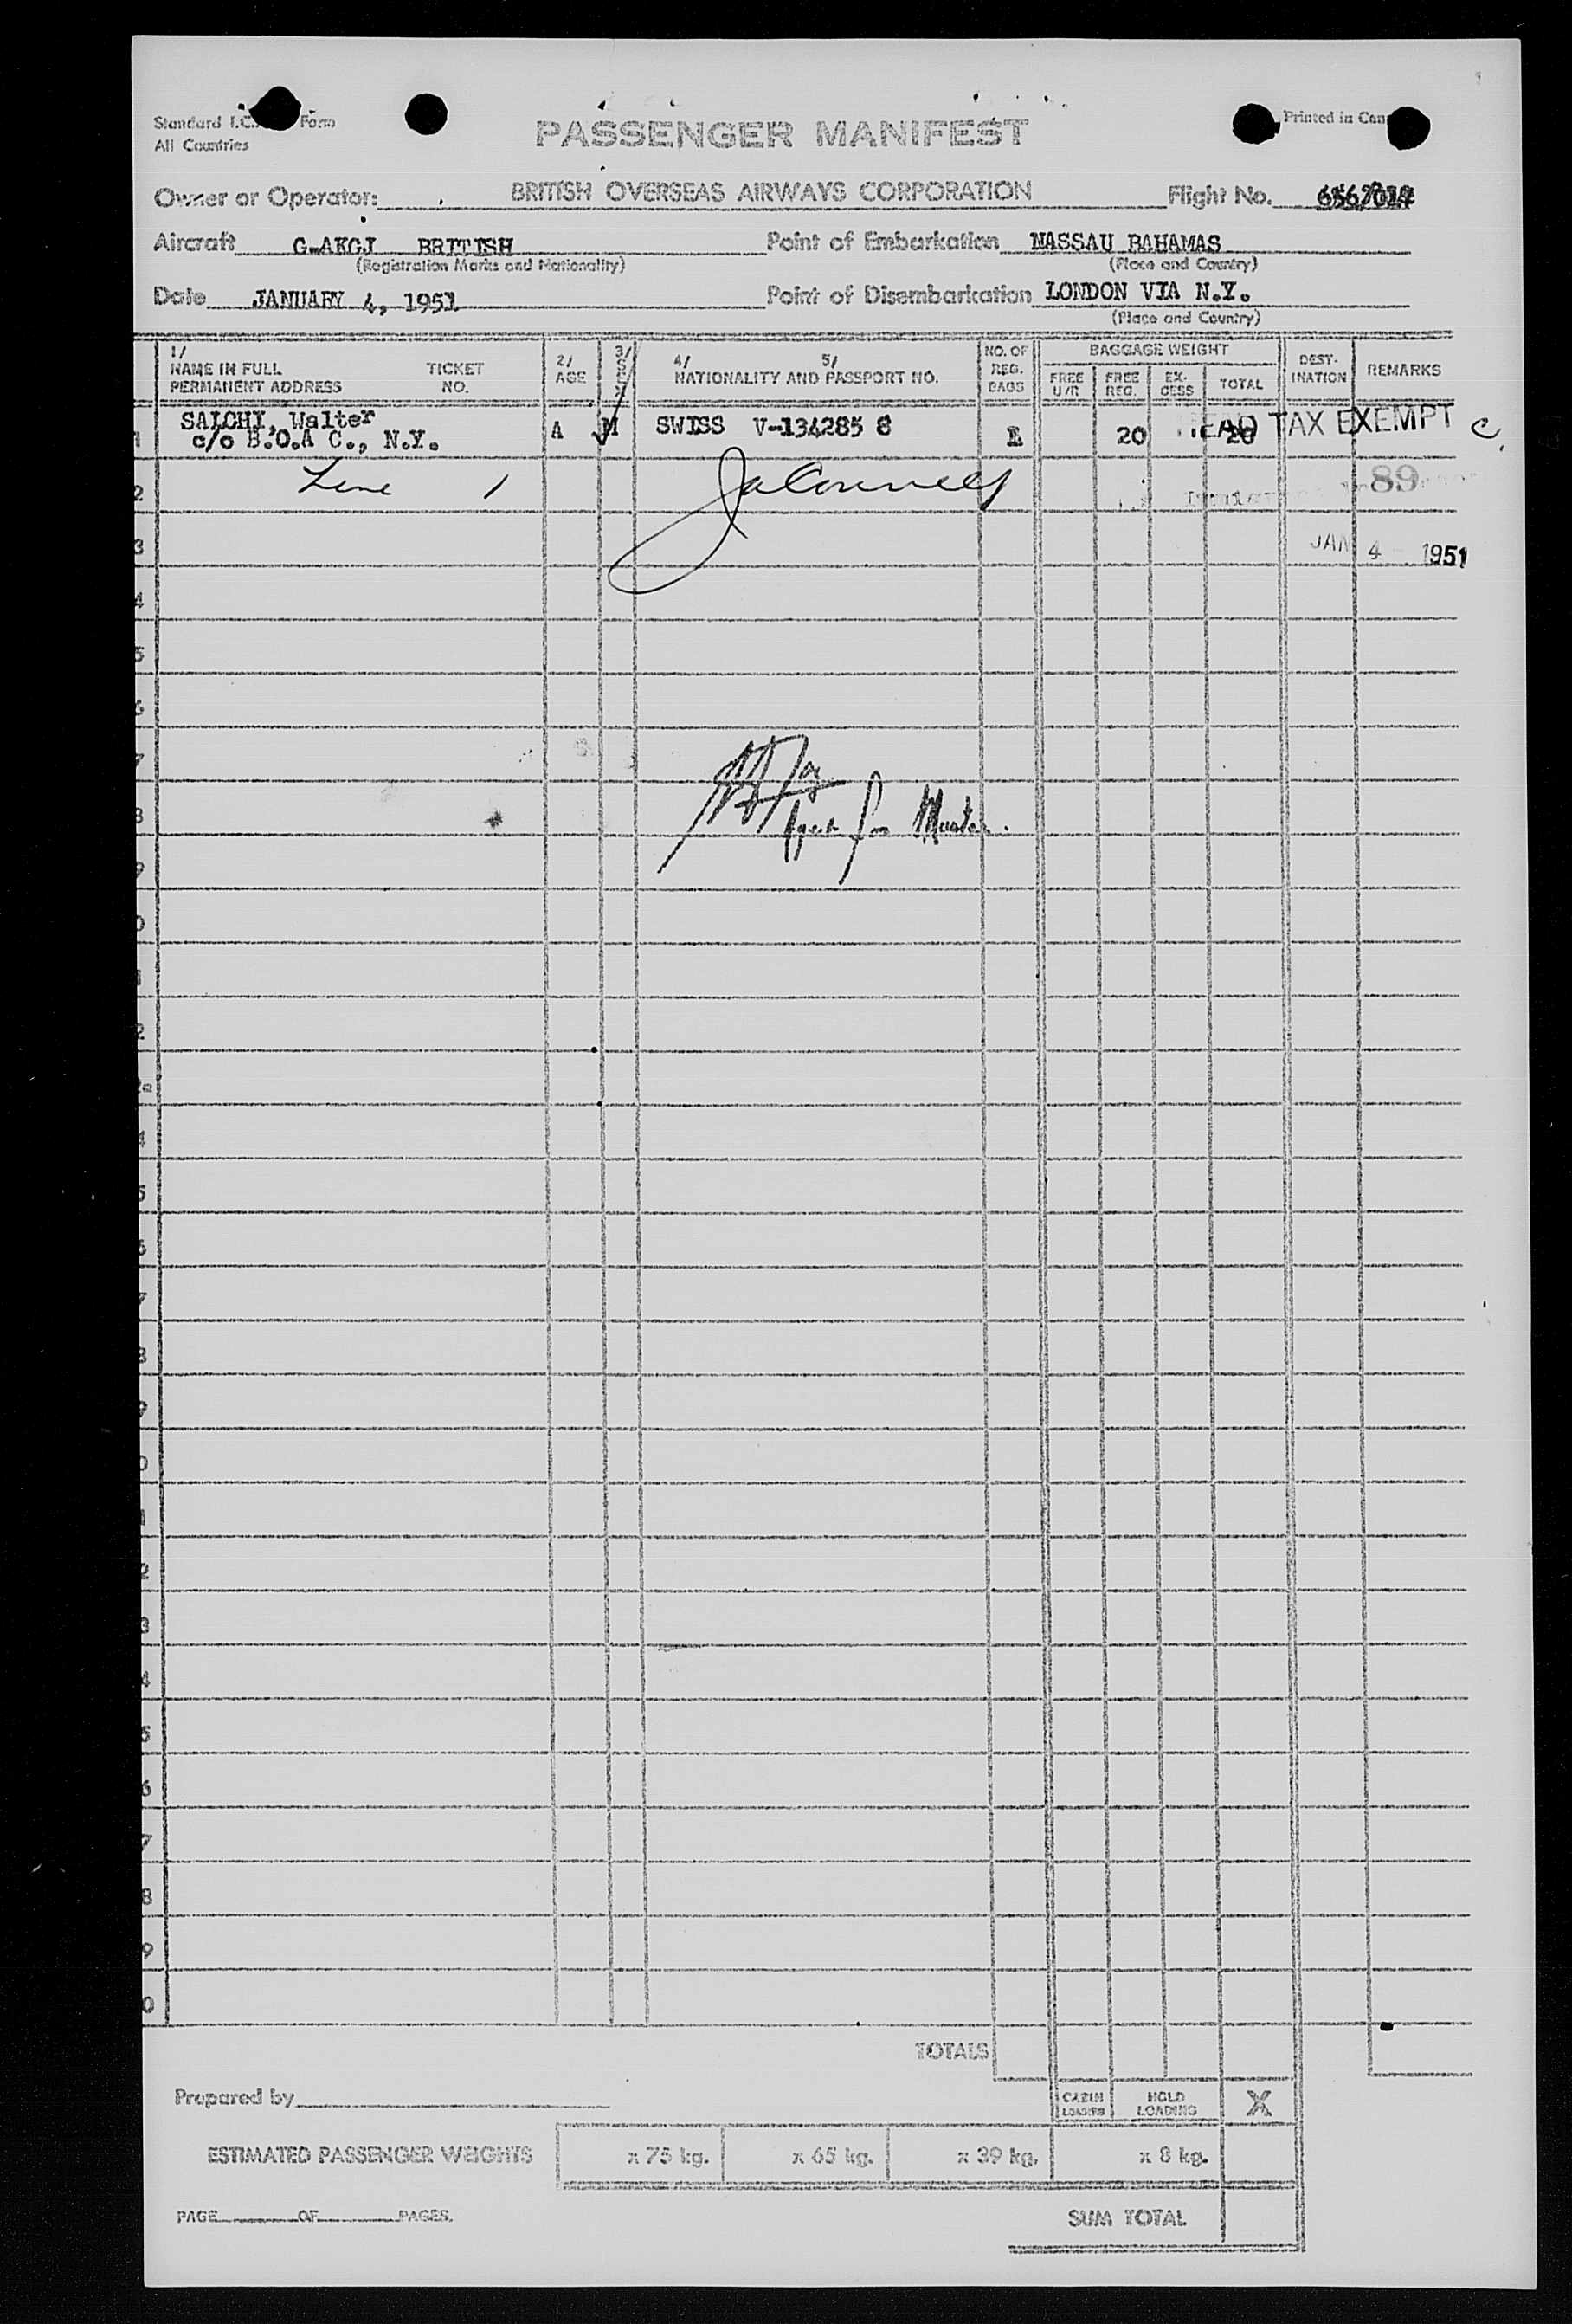 Standard I.C. Form
All Countries
Printed in Can
PASSENGER MANIFEST
Owner or Operator: BRITISH OVERSEAS AIRWAYS CORPORATION Flight No.
Aircraft G-AKGJ BRITISH Point of Embarkation NASSAU BAHAMAS
(Registration Marks and Nationality) (Place and Country)
Date JANUARY 4, 1951 Point of Disembarkation LONDON VIA N.Y.
(Place and Country)
1/ NAME IN FULL PERMANENT ADDRESS TICKET NO. 2/ AGE 3/ SEX 4/ 5/ NATIONALITY AND PASSPORT NO. NO. OF REG. BAGS BAGGAGE WEIGHT FREE U/R FREE REG. EX-CESS TOTAL DEST-INATION REMARKS
SALCHI, Walter A M SWISS V-134285 8 20 20 HEAD TAX EXEMPT C
c/o B.O.A C., N.Y.
Line 1
89
JAN 4 1951
Agent for Master.
TOTALS
Prepared by CABIN LOADING HOLD LOADING X
ESTIMATED PASSENGER WEIGHTS x 75 kg. x 65 kg. x 39 kg. x 8 kg.
PAGE OF PAGES. SUM TOTAL